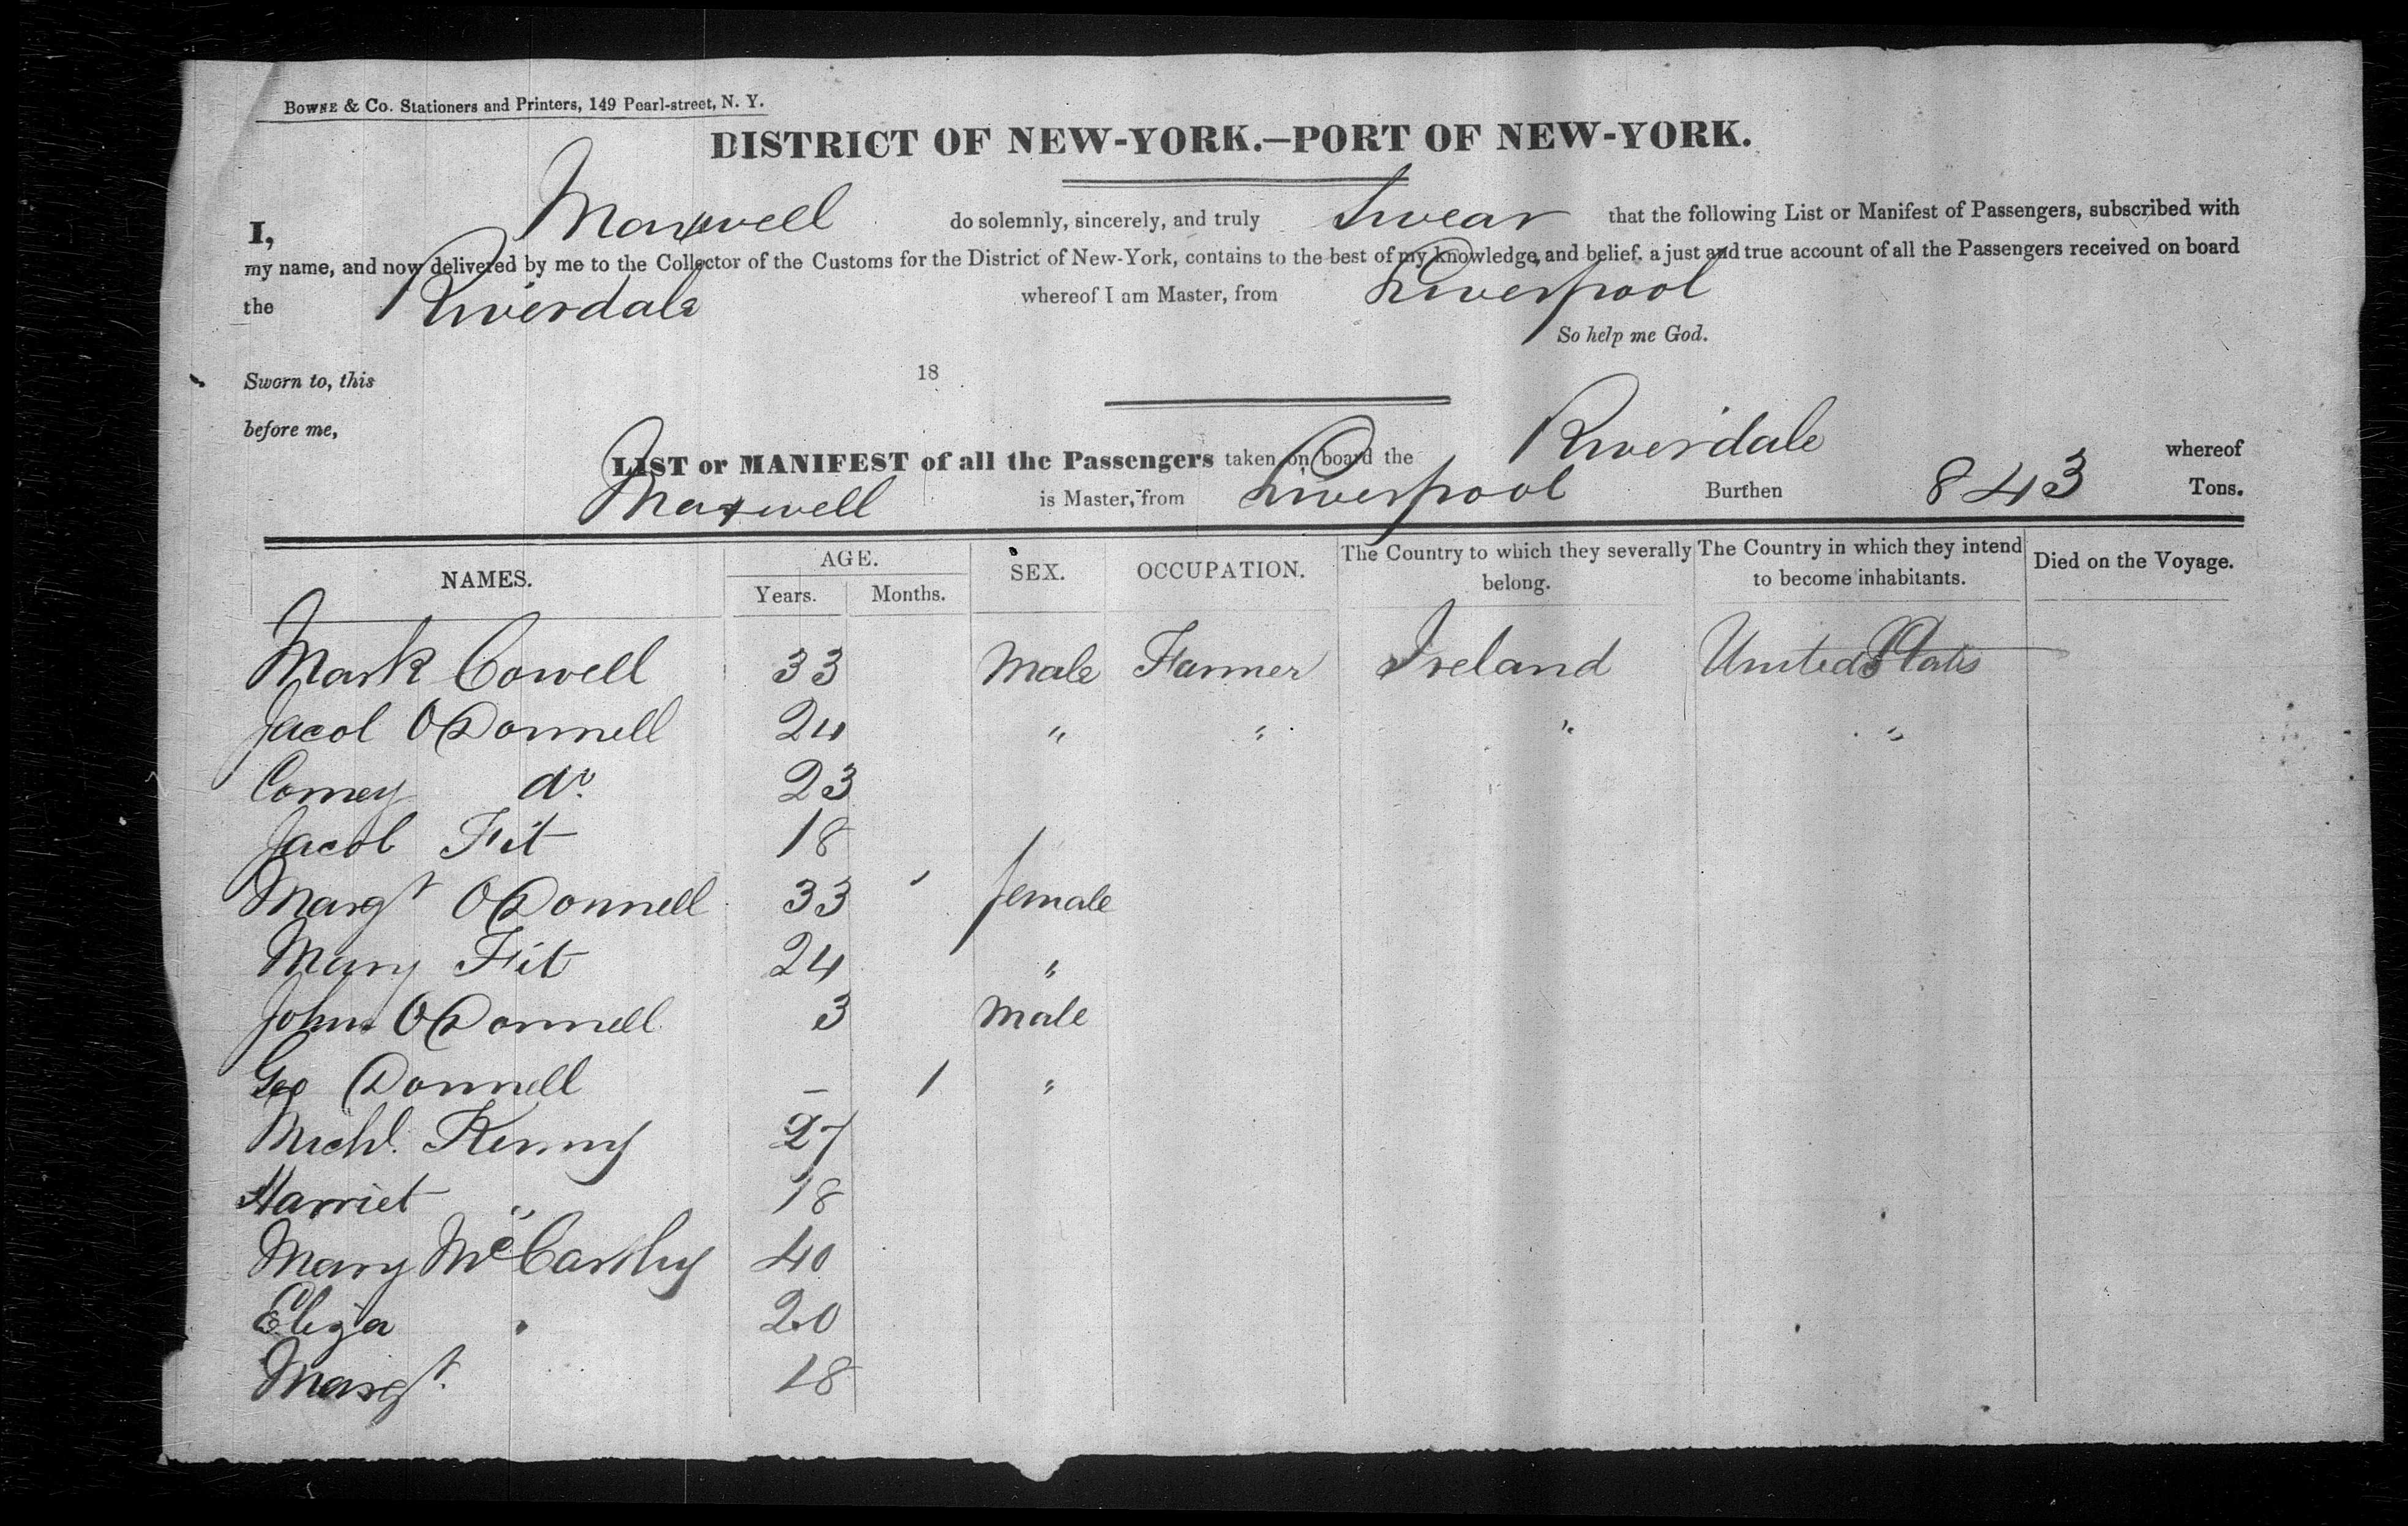 BOWNE & CO. Stationers and Printers, 149 Pearl-street, N. Y.
DISTRICT OF NEW-YORK.—PORT OF NEW-YORK.
I, Maxwell do solemnly, sincerely, and truly Swear that the following List or Manifest of Passengers, subscribed with
my name, and now delivered by me to the Collector of the Customs for the District of New-York, contains to the best of my knowledge, and belief. a just and true account of all the Passengers received on board
the Riverdale whereof I am Master, from Liverpool
So help me God.
Sworn to, this 18
before me,
LIST or MANIFEST of all the Passengers taken on board the Riverdale whereof
Maxwell is Master, from Liverpool Burthen 843 Tons.
NAMES. AGE. Years. Months. SEX. OCCUPATION. The Country to which they severally belong. The Country in which they intend to become inhabitants. Died on the Voyage.
Mark Cowell 33 Male Farmer Ireland United States
Jacob O'Donnell 24 " " " "
Comey do. 23
Jacob Fit 18
Margt O'Donnell 33 female
Mary Fit 24 "
John O'Donnell 3 Male
Geo Donnell – 1 "
Michl. Kenny 27
Harriet " 18
Mary McCarthy 40
Eliza " 20
Margt. 18